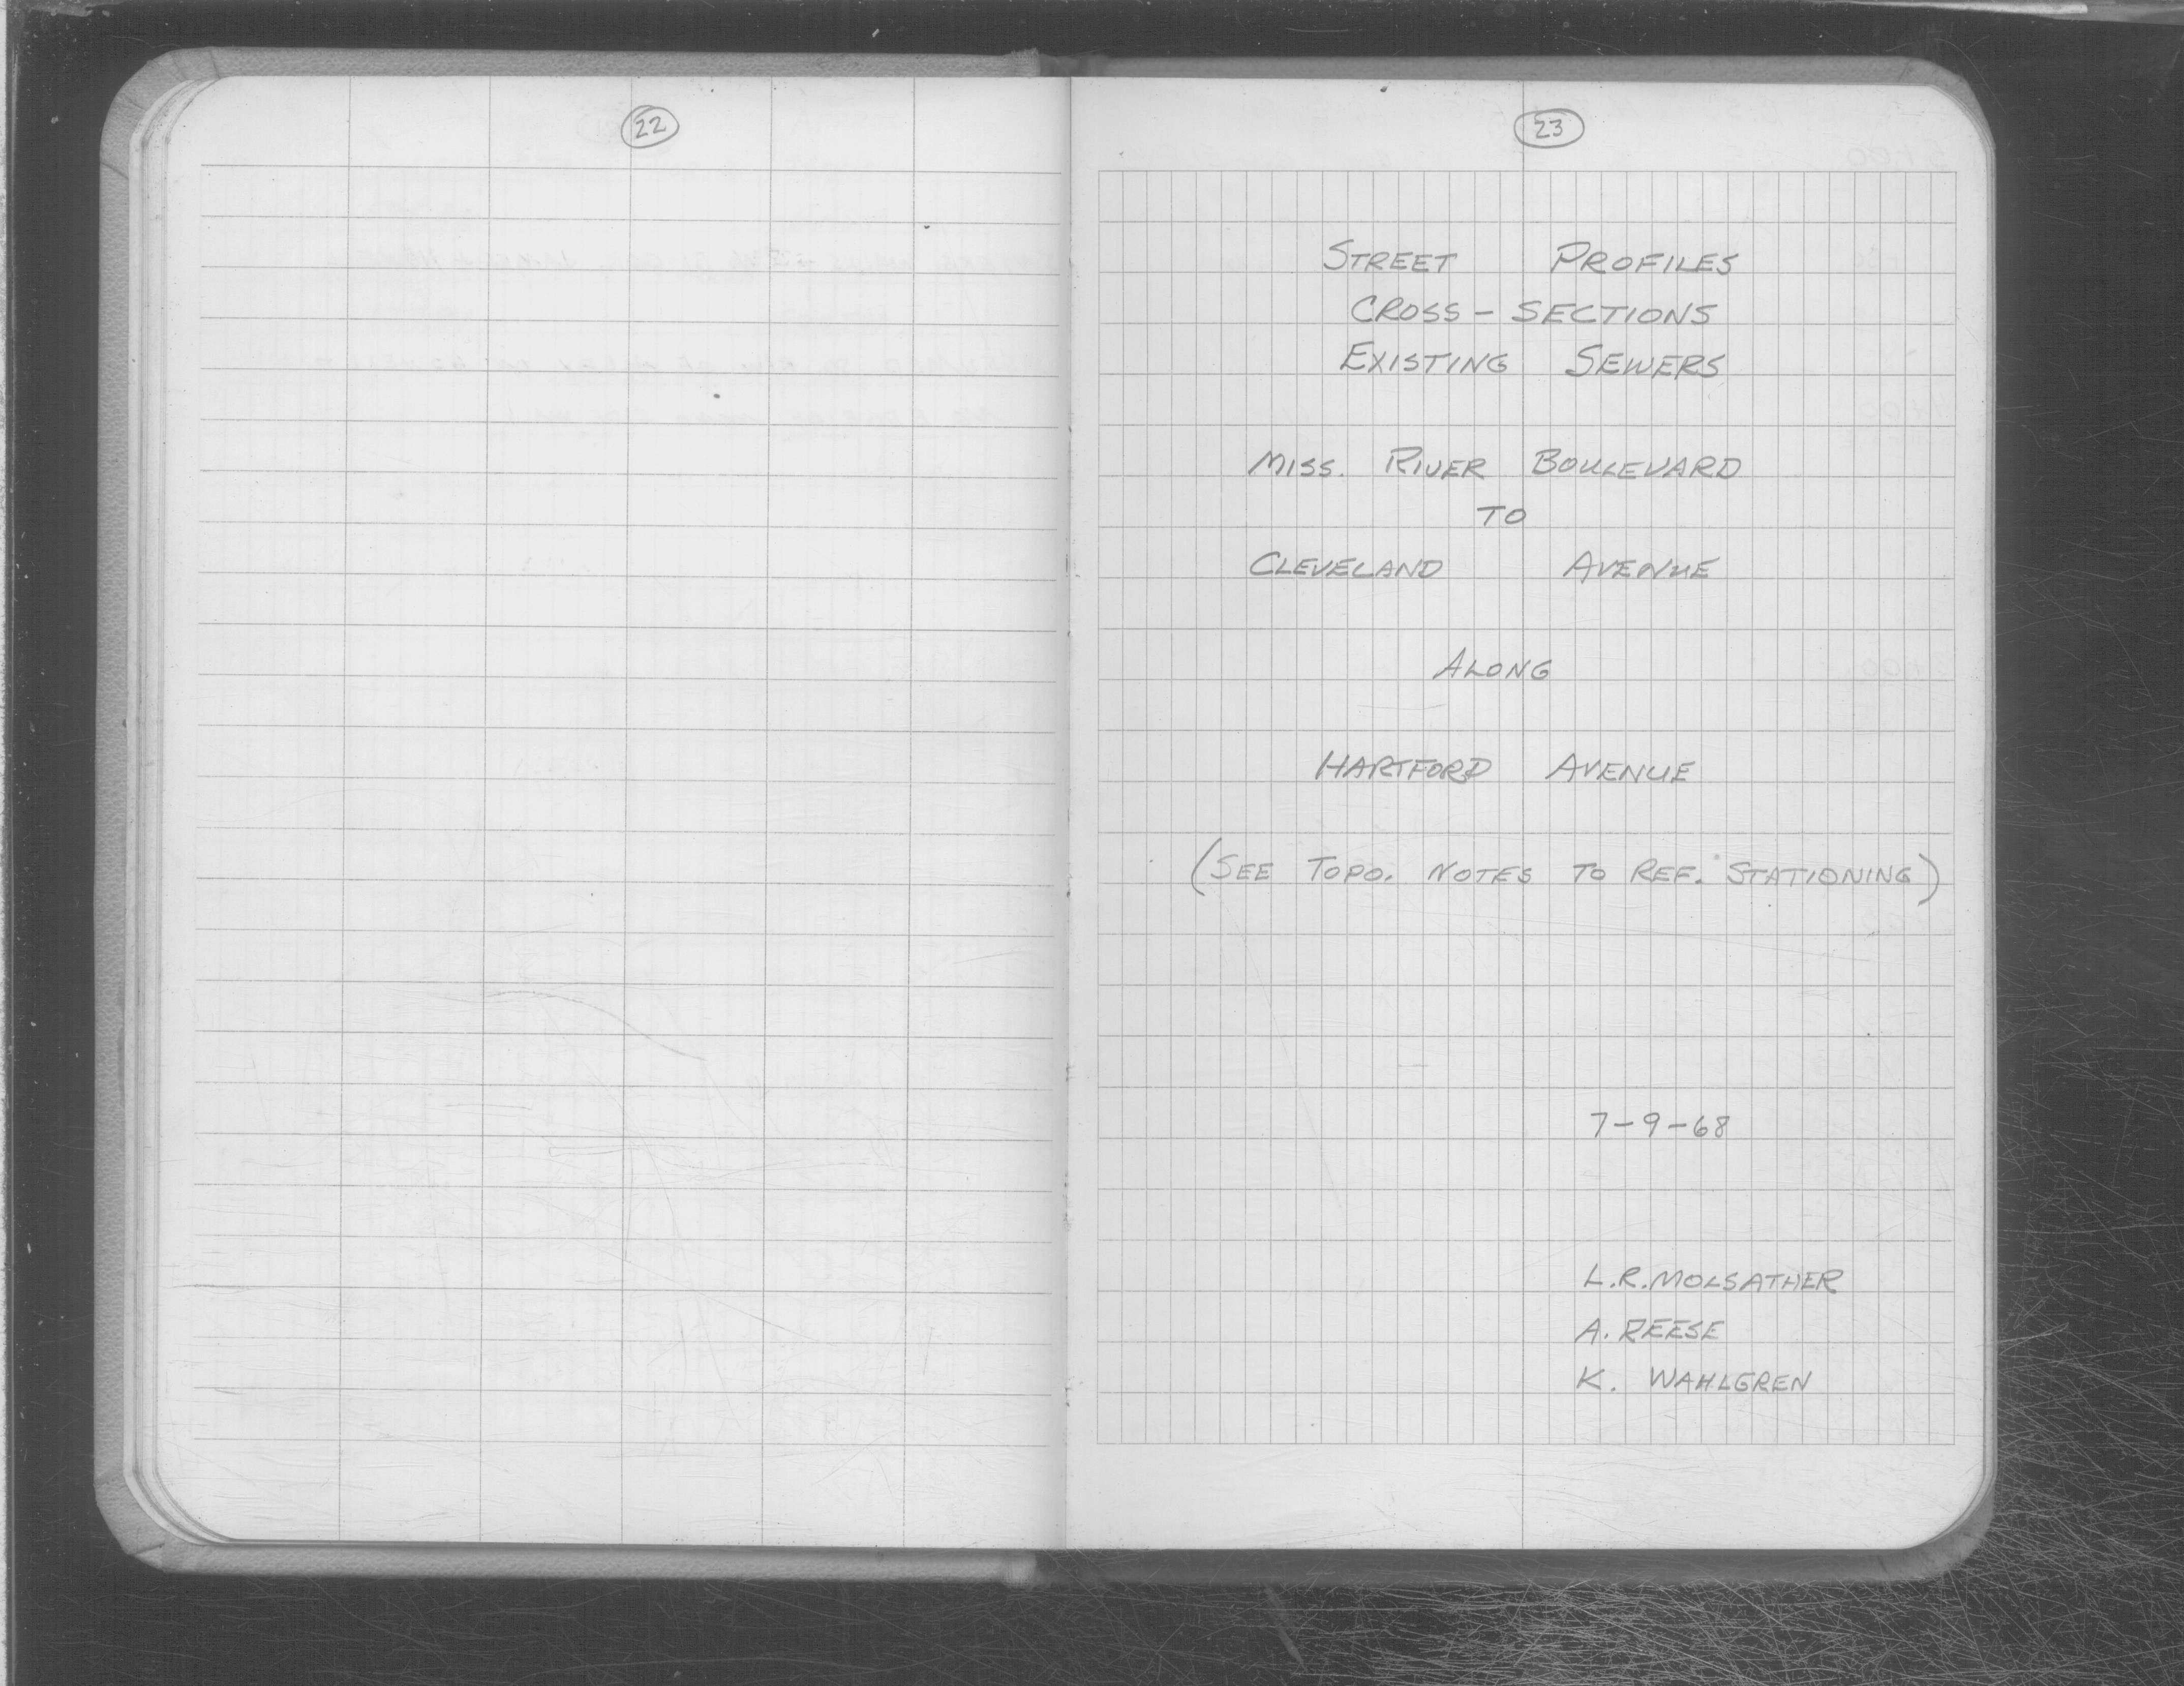 22
23
STREET PROFILES
CROSS - SECTIONS
EXISTING SEWERS
MISS. RIVER BOULEVARD
TO
CLEVELAND AVENUE
ALONG
HARTFORD AVENUE
(SEE TOPO. NOTES TO REF. STATIONING)
7-9-68
L.R. MOLSATHER
A. REESE
K. WAHLGREN